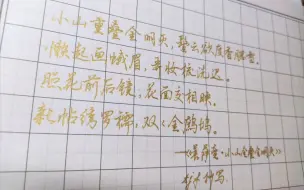 小山重叠金明灭，鬓云欲度香腮雪。
懒起画蛾眉，弄妆梳洗迟。
照花前后镜，花面交相映。
新帖绣罗襦，双双金鹧鸪。
《菩萨蛮·小山重叠金明灭》